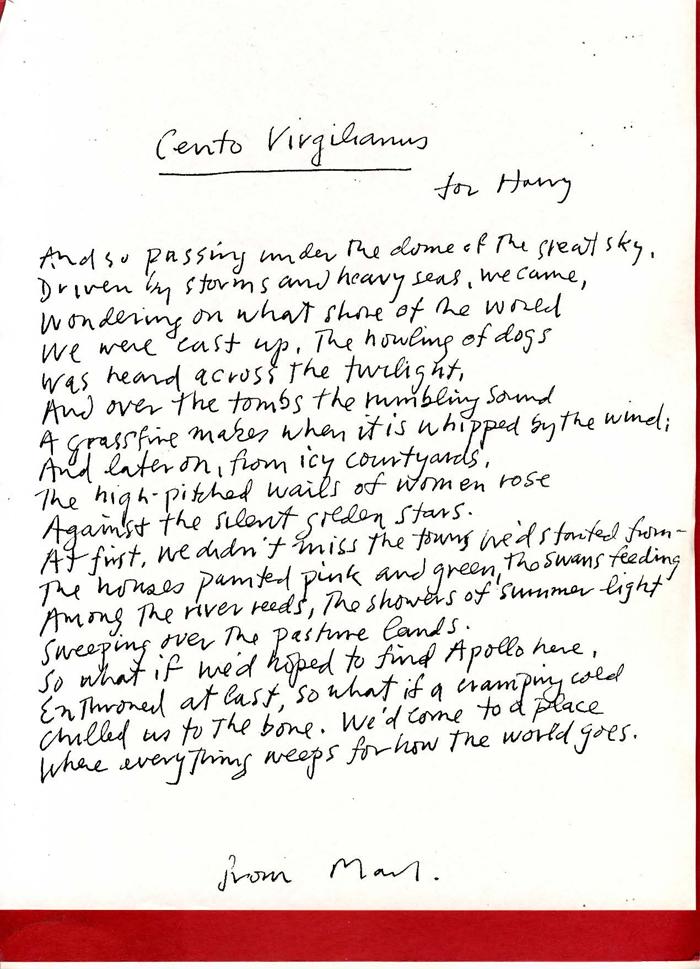 Cento Virgilianus
for Harry
And so passing under the dome of the great sky,
Driven by storms and heavy seas, we came,
Wondering on what shore of the world
We were cast up. The howling of dogs
Was heard across the twilight,
And over the tombs the rumbling sound
A grassfire makes when it is whipped by the wind;
And later on, from icy courtyards,
The high-pitched wails of women rose
Against the silent golden stars.
At first, we didn't miss the towns we'd started from—
The houses painted pink and green, The swans feeding
Among the river reeds, the showers of summer light
Sweeping over the pasture lands.
So what if we'd hoped to find Apollo here,
Enthroned at last, so what if a cramping cold
Chilled us to the bone. We'd come to a place
Where everything weeps for how the world goes.
from Mark.